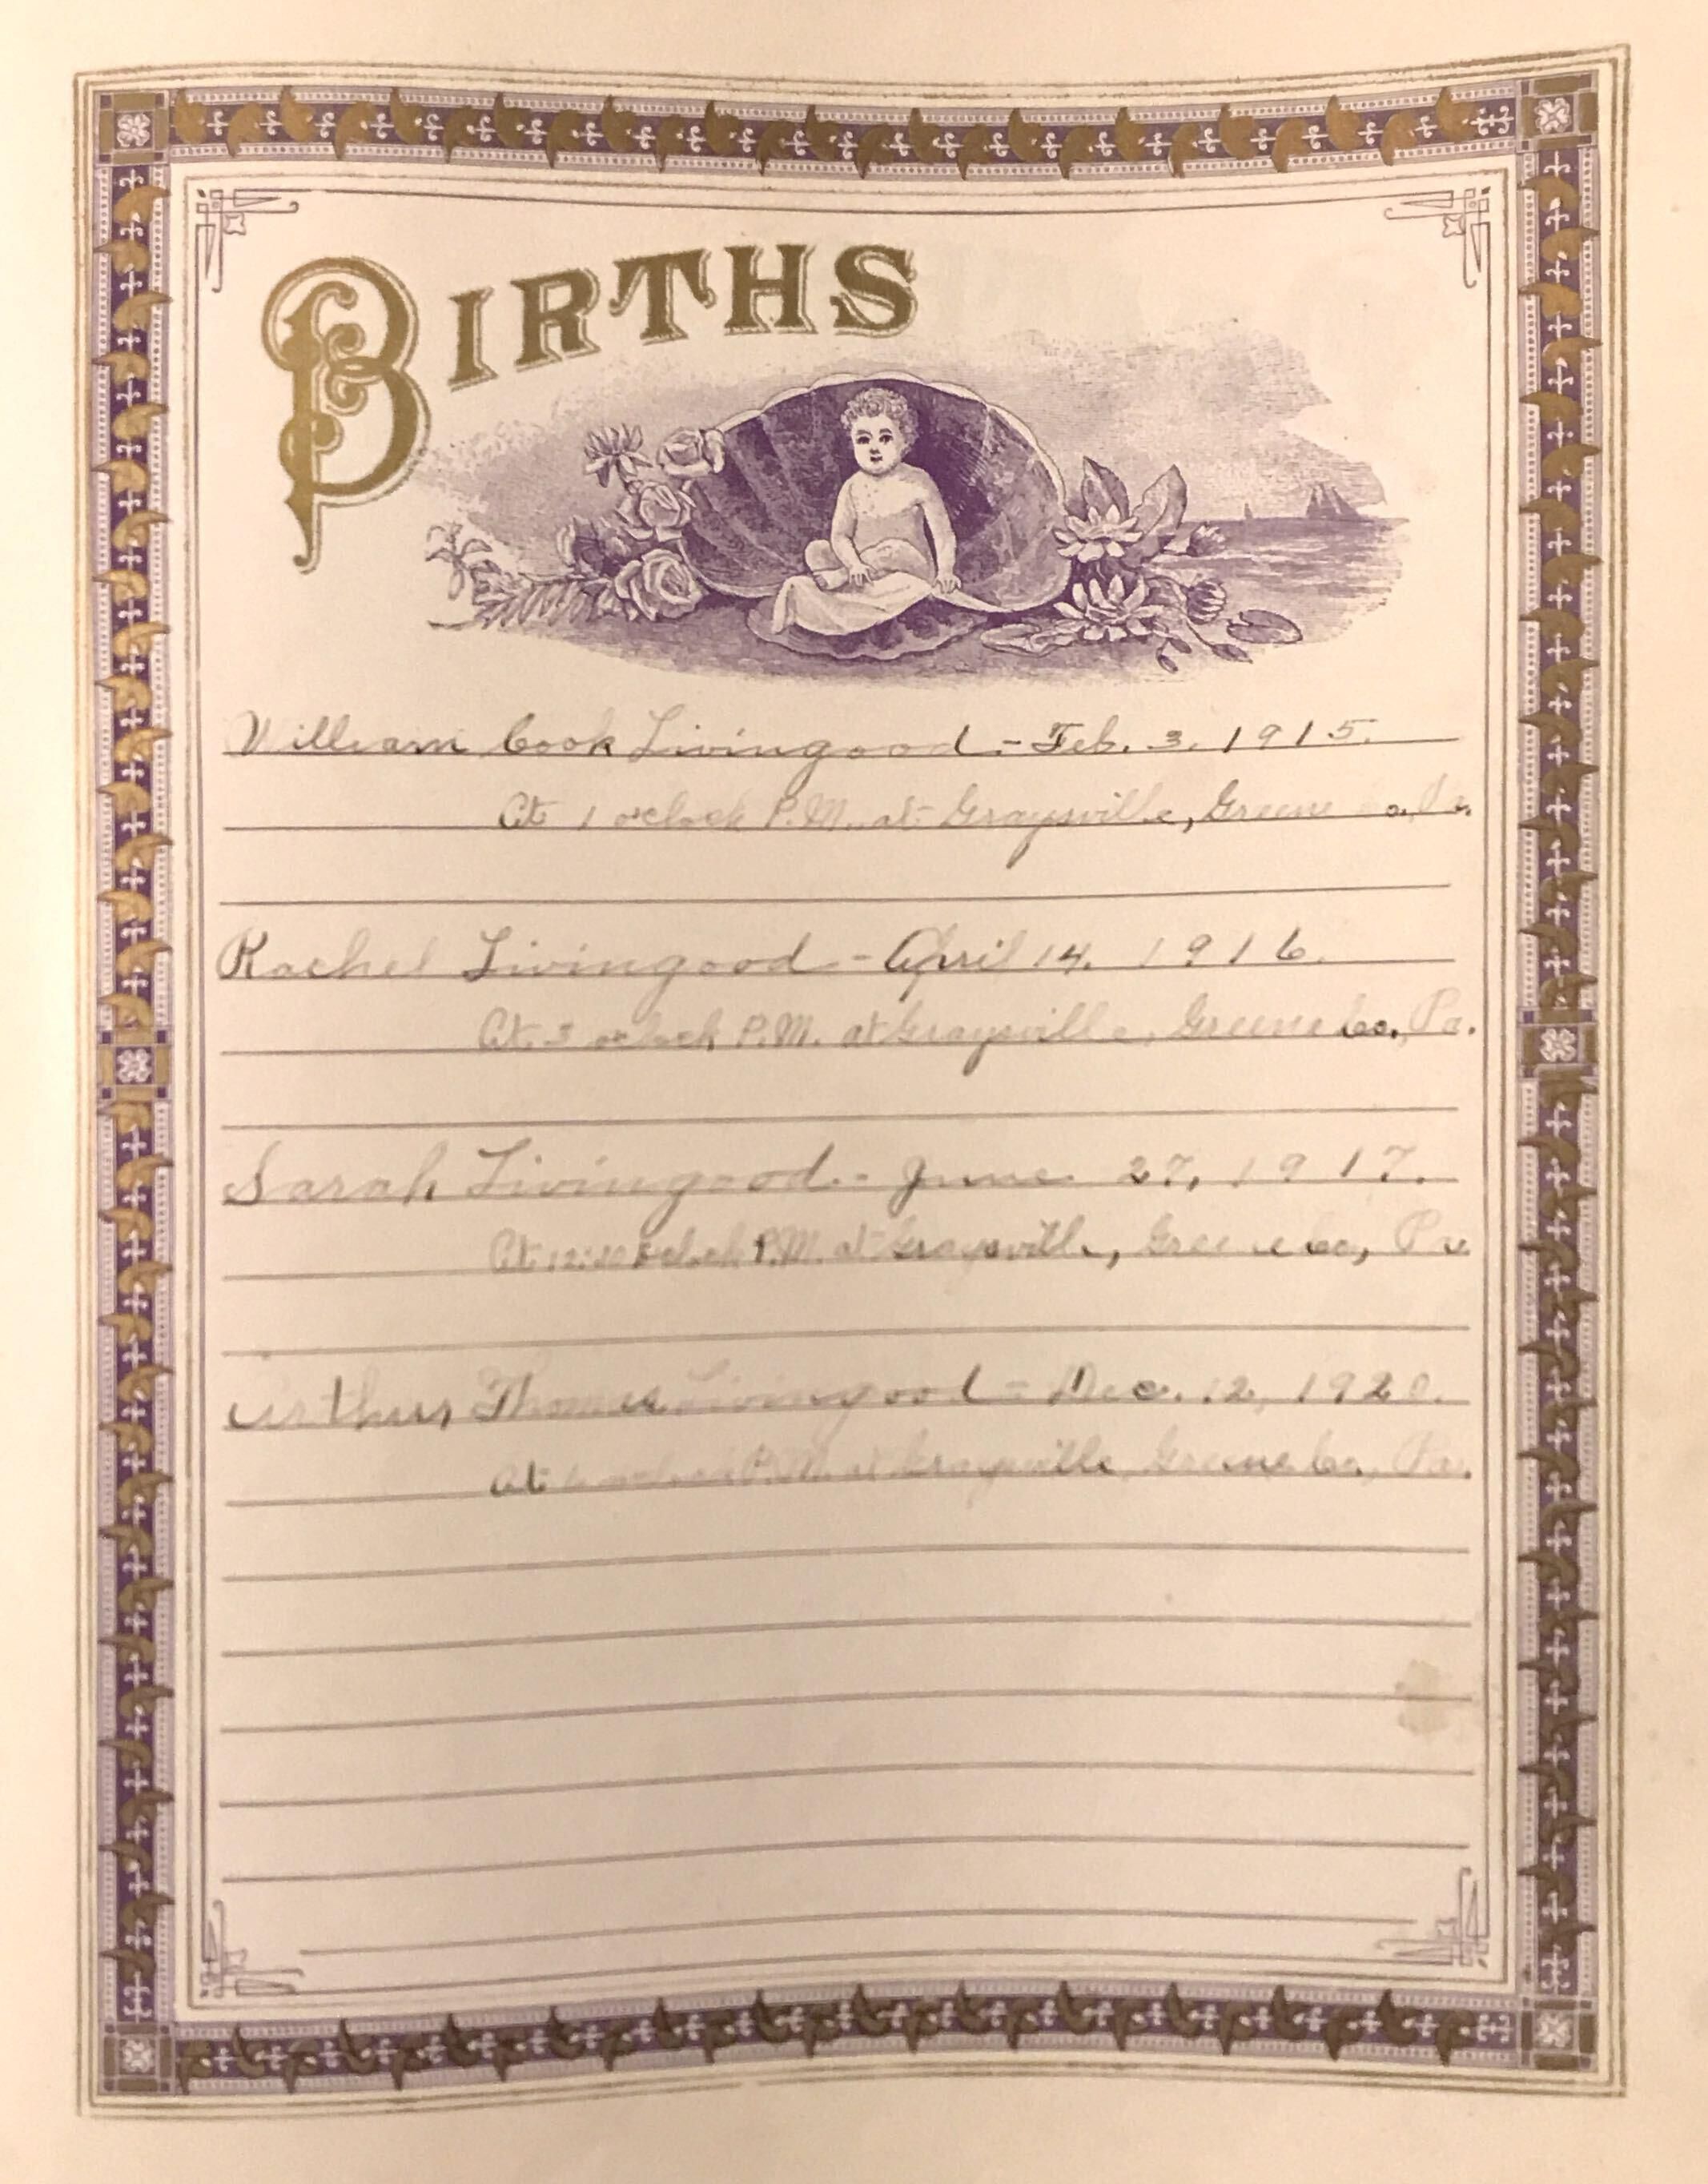 BIRTHS
William Cook Livingood - Feb. 3. 1915.
At 1 o'clock P.M. at Graysville, Greene Co. Pa.
Rachel Livingood - April 14. 1916.
At 3 o'clock P.M. at Graysville, Greene Co., Pa.
Sarah Livingood - June 27, 1917.
At o'clock P.M. at Graysville, Greene Co, Pa
Arthur Thomas Livingood - Dec. 12, 1920.
At o'clock P.M. at Graysville, Greene Co., Pa.